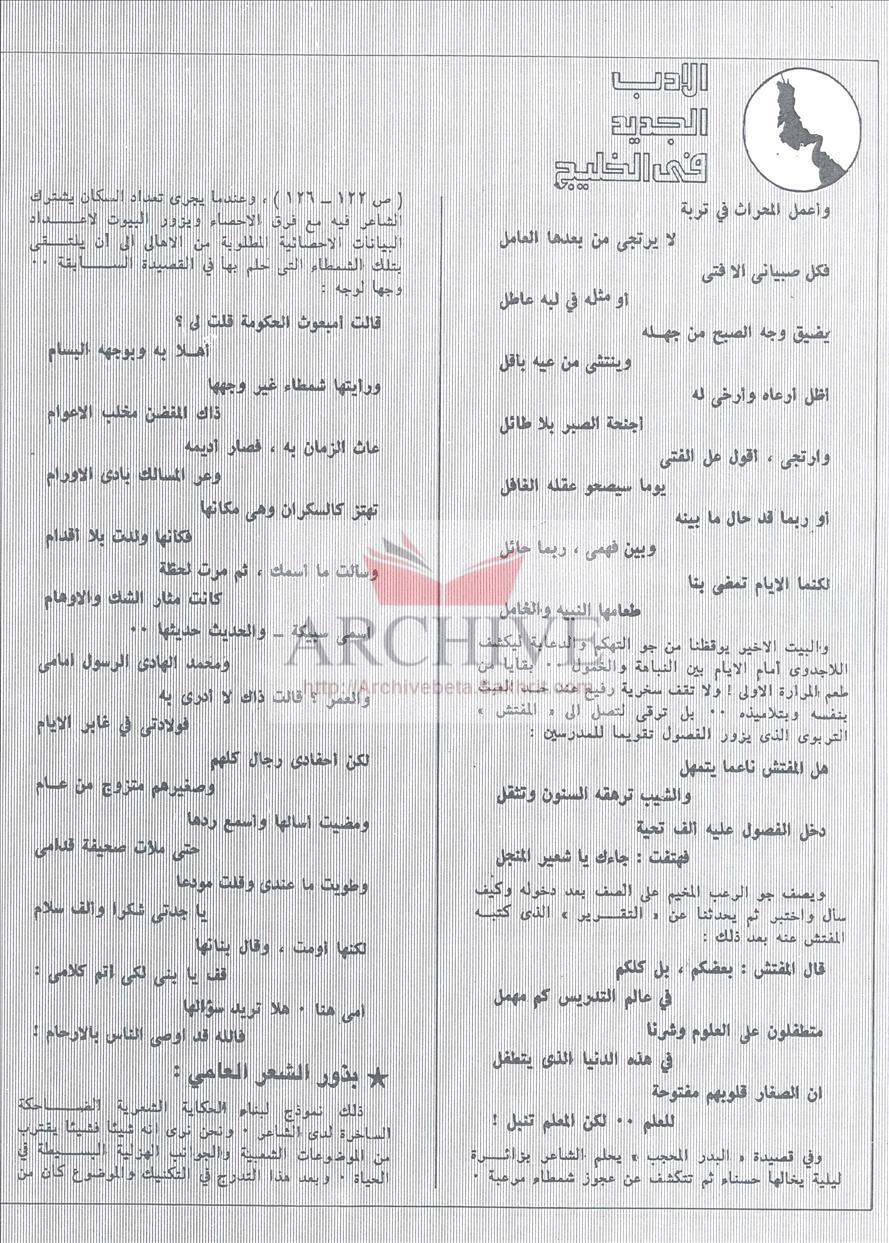 الادب
الجديد
في الخليج
وأعمل المحراث في تربة
لا يرتجى من بعدها العامل
فكل صبياني الا فتى
أو مثله في لبه عاطل
يضيق وجه الصبح من جهله
وينتشي من عيه باقل
أظل أرعاه وأرخى له
أجنحة الصبر بلا طائل
وارتجى ، أقول عل الفتى
يوما سيصحو عقله الغافل
أو ربما قد حال ما بينه
وبين فهمى ، ربما حائل
لكنما الايام تمضى بنا
طعامها النبيه والخامل
والبيت الاخير يوقظنا من جو التهكم والدعابة ليكشف
اللاجدوى أمام الايام بين النباهة والخمول ٠٠ بقايا من
طعم المرارة الاولى ! ولا تقف سخرية رفيع عند حد العبث
بنفسه وبتلاميذه ٠٠ بل ترقى لتصل الى « المفتش »
التربوى الذى يزور الفصول تقويما للمدرسين :
هل المفتش ناعما يتمهل
والشيب ترهقه السنون وتثقل
دخل الفصول عليه ألف تحية
فهتفت : جاءك يا شعير المنجل
ويصف جو الرعب المخيم على الصف بعد دخوله وكيف
سأل واختبر ثم يحدثنا عن « التقرير » الذى كتبه
المفتش عنه بعد ذلك :
قال المفتش : بعضكم ، بل كلكم
في عالم التدريس كم مهمل
متطفلون على العلوم وشرنا
في هذه الدنيا الذى يتطفل
ان الصغار قلوبهم مفتوحة
للعلم ٠٠ لكن المعلم تنبل !
وفي قصيدة « البدر المحجب » يحلم الشاعر بزائرة
ليلية يخالها حسناء ثم تتكشف عن عجوز شمطاء مرعبة ٠
( ص ١٢٢ ــ ١٢٦ ) ، وعندما يجرى تعداد السكان يشترك
الشاعر فيه مع فرق الاحصاء ويزور البيوت لاعداد
البيانات الاحصائية المطلوبة من الاهالى الى أن يلتقى
بتلك الشمطاء التى حلم بها في القصيدة السابقة ٠٠
وجها لوجه :
قالت أمبعوث الحكومة قلت لى ؟
أهلا به وبوجهه البسام
ورأيتها شمطاء غير وجهها
ذاك المغضن مخلب الاعوام
عاث الزمان به ، فصار أديمه
وعر المسالك بادى الاورام
تهتز كالسكران وهى مكانها
فكأنها ولدت بلا أقدام
وسألت ما أسمك ، ثم مرت لحظة
كانت مثار الشك والاوهام
اسمى سبيكة ــ والحديث حديثها ٠٠
ومحمد الهادى الرسول امامى
والعمر ؟ قالت ذاك لا أدرى به
فولادتى في غابر الايام
لكن أحفادى رجال كلهم
وصغيرهم متزوج من عام
ومضيت أسألها وأسمع ردها
حتى ملات صحيفة قدامى
وطويت ما عندى وقلت مودعا
يا جدتى شكرا وألف سلام
لكنها أومت ، وقال بنانها
قف يا بنى لكى أتم كلامى :
أمى هنا ٠ هلا تريد سؤالها
فالله قد أوصى الناس بالارحام !
★ بذور الشعر العامي :
ذلك نموذج لبناء الحكاية الشعرية الضاحكة
الساخرة لدى الشاعر ٠ ونحن نرى انه شيئا فشيئا يقترب
من الموضوعات الشعبية والجوانب الهزلية البسيطة في
الحياة ٠ وبعد هذا التدرج في التكنيك والموضوع كان من
ARCHIVE
http://Archivebeta.Sakhrit.com